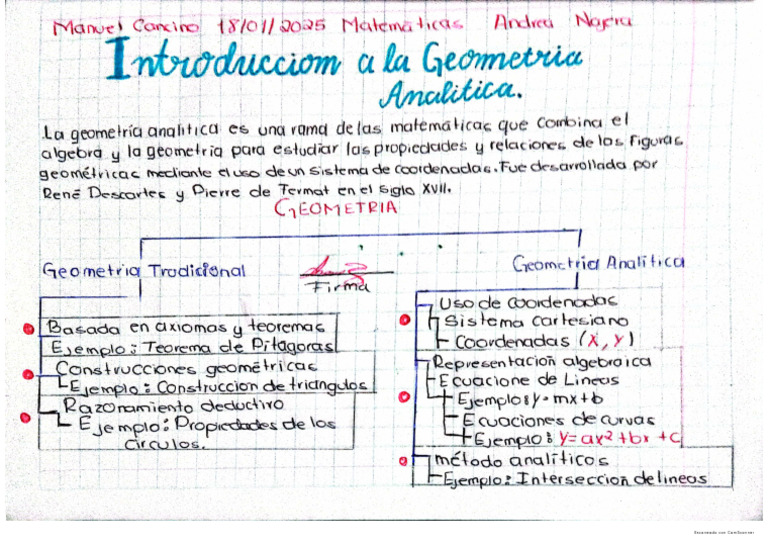 Manuel Cancino 18/01/2025 Matemáticas Andrea Najera
Introducciom a la Geometria
Analitica.
La geometría analítica es una rama de las matemáticas que combina el
algebra y la geometria para estudiar las propiedades y relaciones de las figuras
geométricas mediante el uso de un sistema de coordenadas. Fue desarrollada por
René Descartes y Pierre de Fermat en el siglo XVII.
GEOMETRIA
Geometria Tradicional
Firma
Basada en axiomas y teoremas
Ejemplo: Teorema de Pitagoras
Construcciones geométricas
Ejemplo: Construccion de triangulos
Razonamiento deductivo
Ejemplo: Propiedades de los
circulos.
Geometria Analitica
Uso de coordenadas
Sistema cartesiano
Coordenadas (X, Y)
Representacion algebraica
Ecuacione de Lineas
Ejemplo: y=mx+b
Ecuaciones de curvas
Ejemplo: y=ax²+bx+c
método analíticos
Ejemplo: Interseccion de lineas
Escaneado con CamScanner